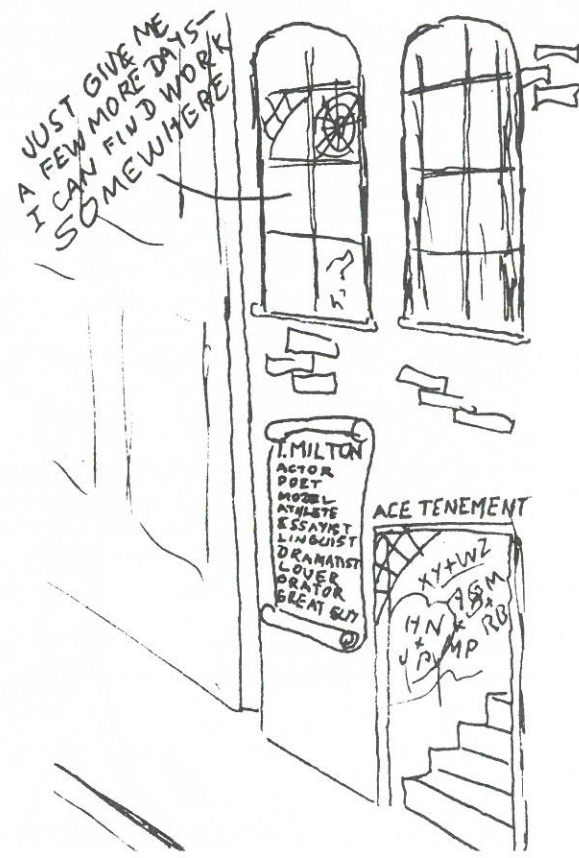 JUST GIVE ME
A FEW MORE DAYS-
I CAN FIND WORK
SOMEWHERE
T. MILTON
ACTOR
POET
MODEL
ATHLETE
ESSAYIST
LINGUIST
DRAMATIST
LOVER
ORATOR
GREAT GUY
ACE TENEMENT
XY+WZ
HN
+
MP
RB